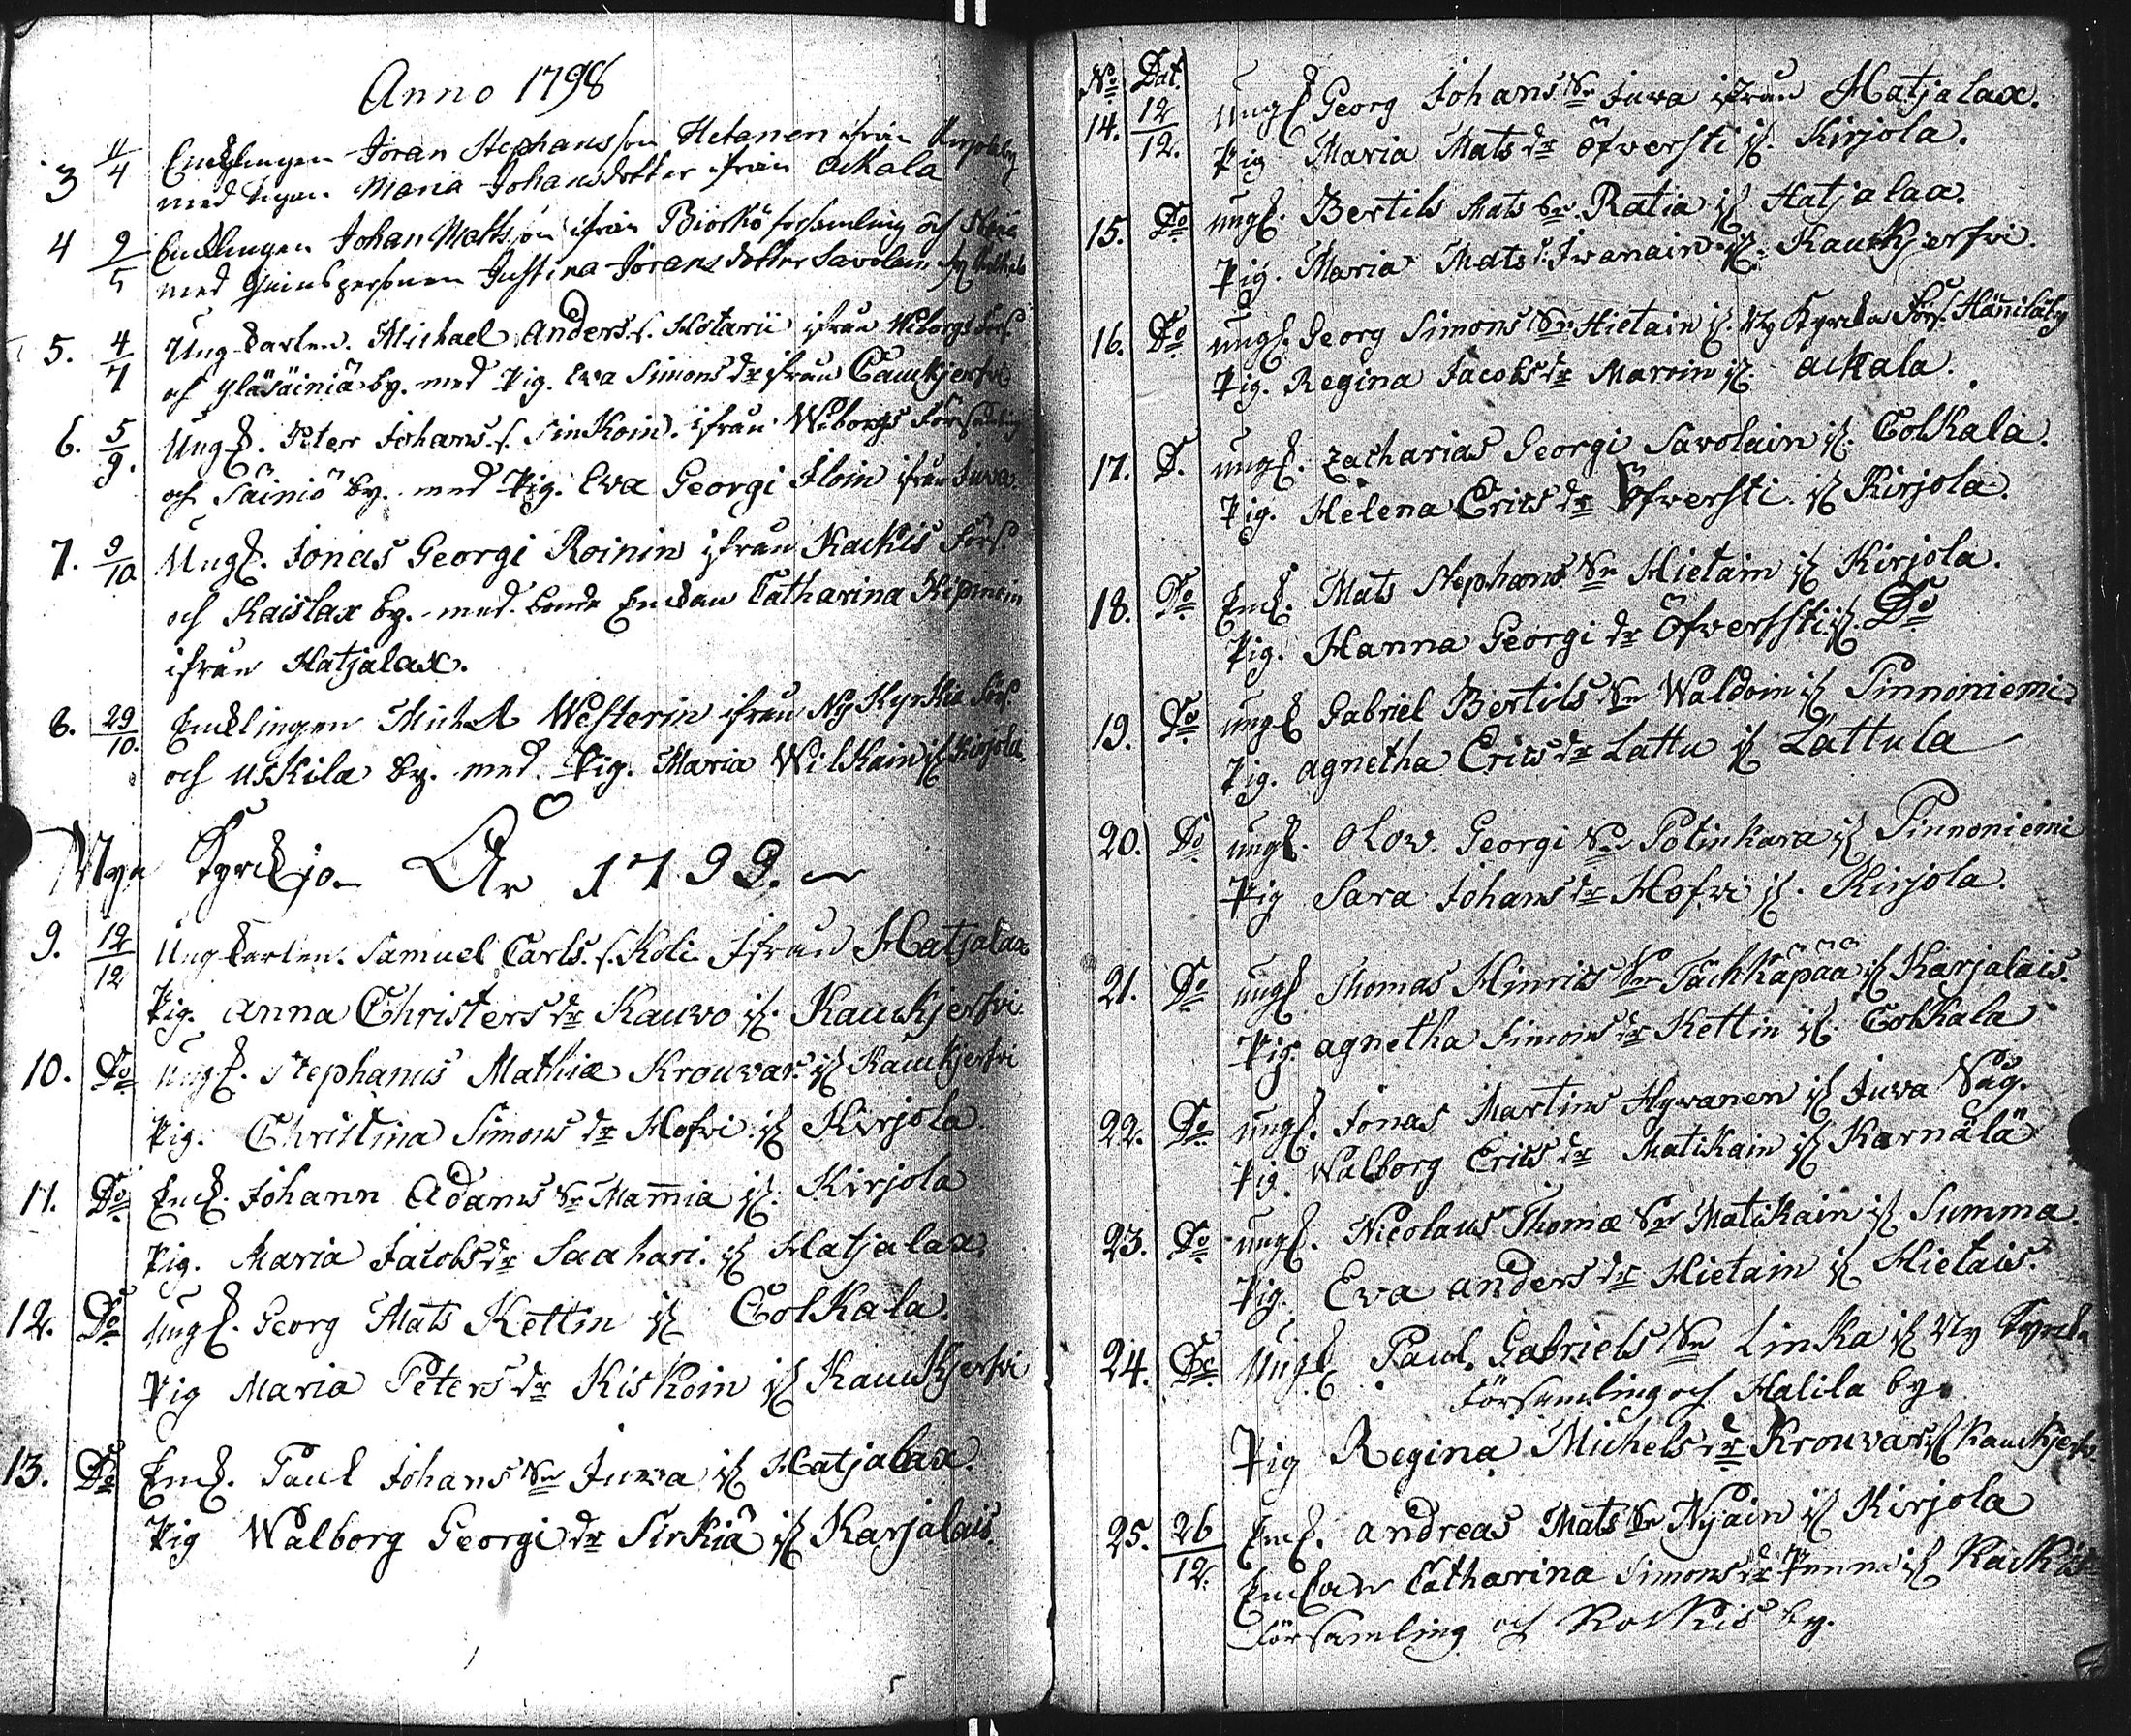 Anno 1798
3 11/4 Encklingen Jöran Stephansson Hetanen ifrån Kirjola by
med Pigan Maria Johansdotter ifrån Ackala
4 9/5 Encklingen Johan Mattsson ifrån Biörkö forsamling och
med Qvinspersonen Justina Jörans dotter Savolain
5. 4/7 Ung Karlen. Michael Anders. s. Hotarii ifrån Wiborgs Förs.
och Yläsäiniä by. med Pig. Eva Simons dr ifrån Caukjerfvi
6. 5/9. Ungk. Peter Johans. s. Sinkoin. ifrån Wiborgs Församling
och Säiniö by. med Pig. Eva Georgi Iloin ifrån Juva.
7. 9/10 Ungk. Jonas Georgi Roinin ifrån Kackis Förs.
och Kaislax by. med bonde Enckan Catharina
ifrån Hatjalax.
8. 29/10. Encklingen Michel Westerin ifrån Ny Kyrkia Förs.
och Uskila by. med Pig. Maria Wilkain if. Kirjola.
Nya Kyrckjo År 1799.
9. 12/12 Ung Karlen. Samuel Carls. s. Koli Ifrån Hatjalax
Pig. Anna Christers dr Kauvo if. Kaukjerfvi
10. Do Ungk. Stephanus Mathiæ Krouvar. if Kaukjerfvi
Pig. Christina Simons dr Hofvi. if Kirjola.
11. Do Enck. Johann Adams Sn Mam̅ia if. Kirjola
Pig. Maria Jacobs dr Saahari. if Hatjalax.
12. Do Ungk. Georg Mats Kettin if Colkala.
Pig Maria Peters dr Kiskoin if Kaukjerfvi
13. Do Enck. Paul Johans Sn Juwa if Hatjalax.
Pig Walborg Georgi dr Sirkiä if Karjalais.
No Dat.
14. 12/12. Ungk Georg Johans Sn Juva ifrån Hatjalax.
Pig Maria Mats dr Öfversti if. Kirjola.
15. Do ungk. Bertils Mats Sn Ratia if Hatjalax.
Pig. Maria Mats d. Iwanain if. Kaukjerfvi.
16. Do ungk. Georg Simons Sn Hietain if. Ny Kyrcka Förs. Hän̅ilä by
Pig. Regina Jacobs dr Maroin if Ackala.
17. D. ungk. Zacharias Georgi Savolain if. Colkala.
Pig. Helena Erics dr Öfversti if Kirjola.
18. Do Enck. Mats Stephans Sn Hietain if Kirjola.
Pig. Hanna Georgi dr Öfversti if. Do
19. Do ungk Gabriel Bertils Sn Waldoin if Pinnoniemi
Pig. Agnetha Erics dr Lattu if Lattula
20. Do ungk. Olow. Georgi Sn Potinkara if Pinnoniemi
Pig Sara Johans dr Hofvi if. Kirjola.
21. Do ungk Thomas Hinrics Sn Tächkäpää if Karjalais.
Pig. Agnetha Simons dr Kettin if. Colkala
22. Do ungk. Jonas Martins Hyvanen if Juva Såg.
Pig. Walborg Erics dr Matikain if Karnälä
23. Do ungk. Nicolaus Thomæ Sn Matikain if Summa.
Pig. Eva Anders dr Hietain if Hietais.
24. Do Ungk Paul. Gabriels Sn Linka if Ny Kyrcka
Församling och Halila by.
Pig Regina Michels dr Krouvar if Kaukjerfvi.
25. 26/12. Enck. Andreas Mats Sn Nyäin if Kirjola
Enckan Catharina Simons dr if Kackis
Församling och Rokkis by.